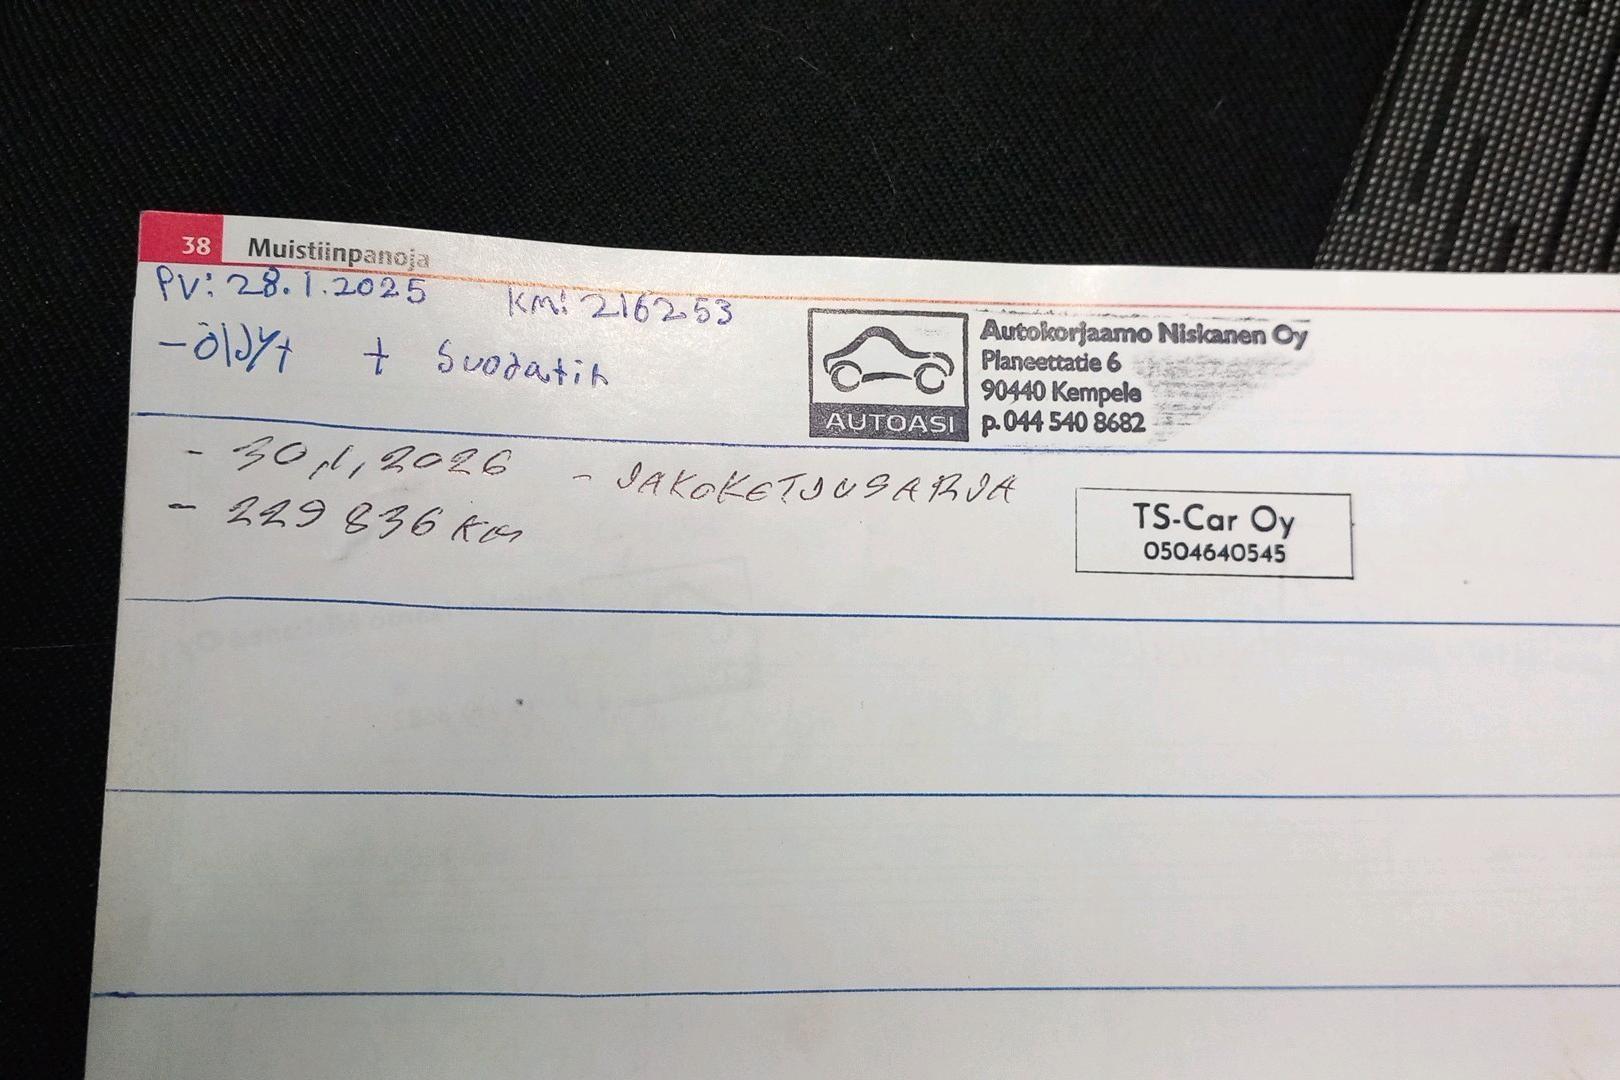 38 Muistiinpanoja
PV: 28.1.2025 KM: 216253
- Öljyt + Suodatin
AUTOASI
Autokorjaamo Niskanen Oy
Planeettatie 6
90440 Kempele
p. 044 540 8682
- 30,1,2026 - JAKOKETJUSARJA
- 229 836 km
TS-Car Oy
0504640545